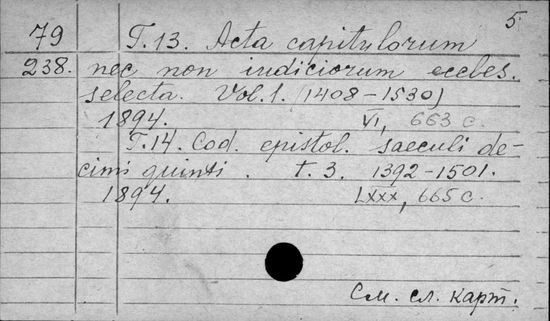 5
79 Т.13. Acta capitulorum
238. nec non iudiciorum eccles.
selecta. Vol. 1. (1408-1530)
1894. VI, 663 с.
Т.14. Cod. epistol. saeculi de-
cimi quinti. t. 3. 1392-1501.
1894. LXXX, 665 с.
См. сл. карт.